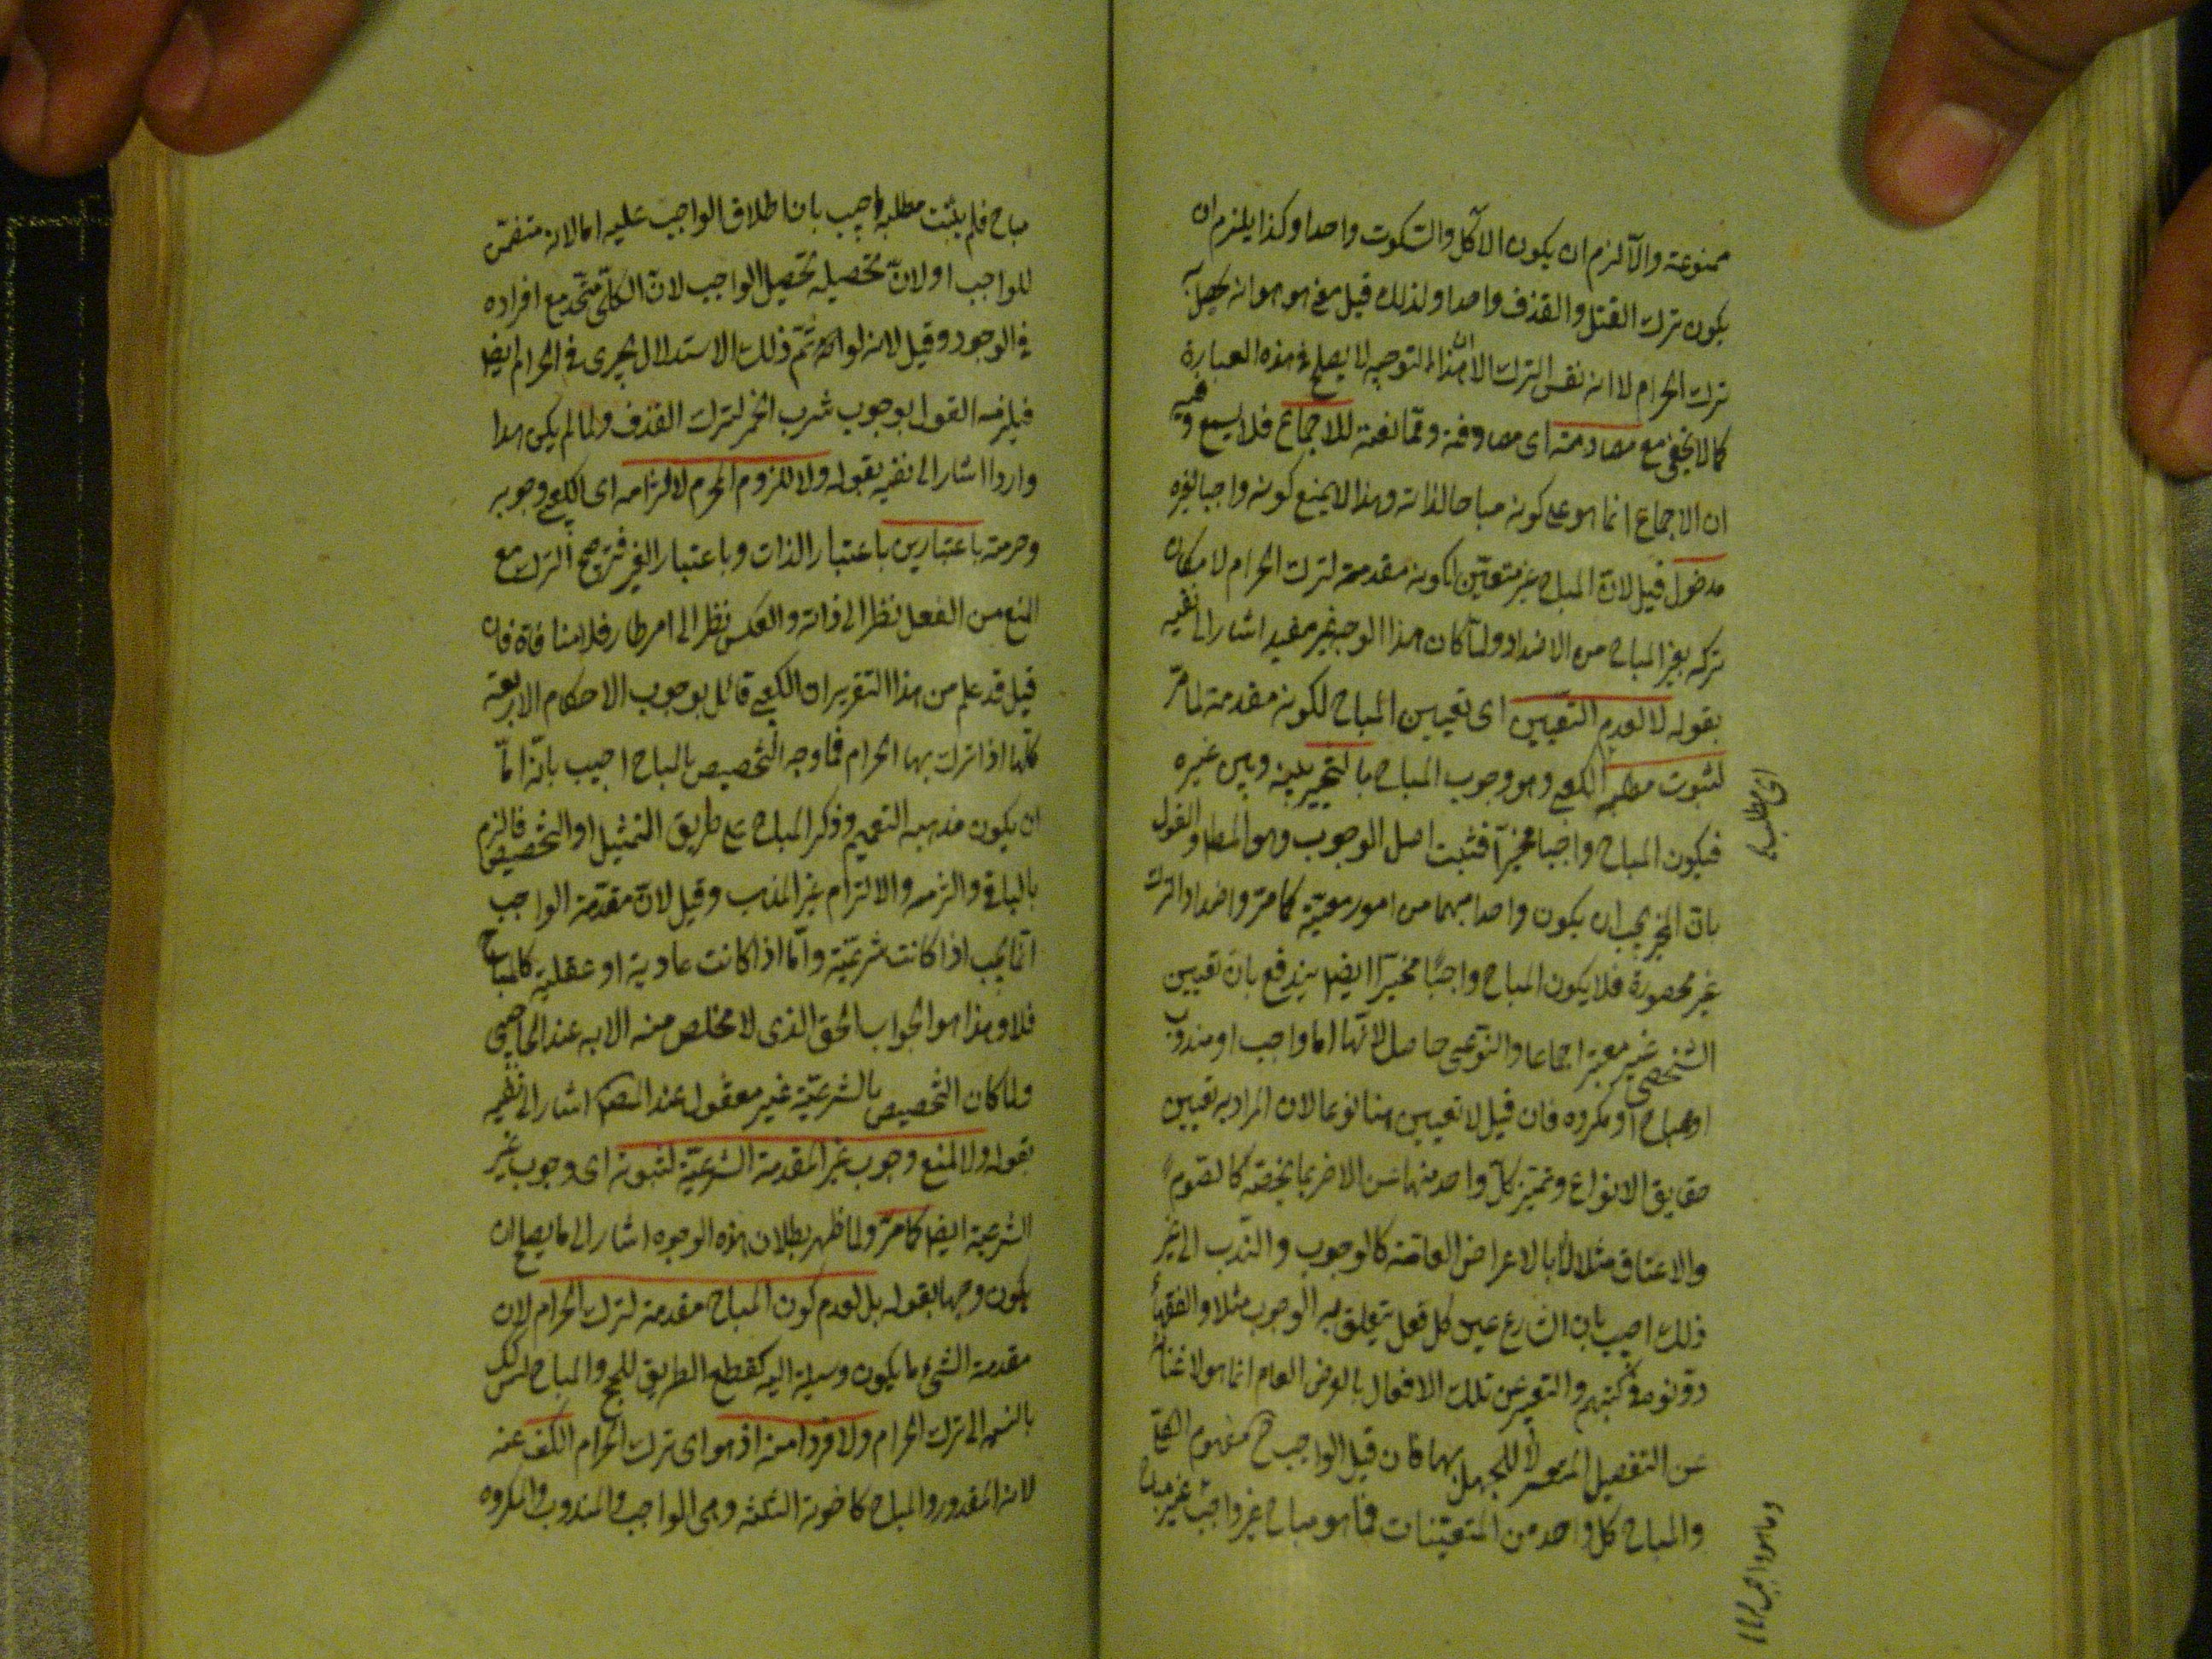 ممنوعة والا لزم ان يكون الاكل والسكوت واحدا وكذا يلزم ان
يكون ترك القتل والقذف واحدا ولذلك قيل معنى هو هو انه يحصل به
ترك الحرام لا انه نفس الترك الا ان هذا التوجيه لا يصلح في هذه العبارة
كما لا يخفى مع مصادمته اى مصادفته وممانعته للاجماع فلا يسمع وفيه
ان الاجماع انما هو على كونه مباحا لذاته وهذا لا يمنع كونه واجبا لغيره
مدخول قيل لان المباح غير متعين لكونه مقدمة لترك الحرام لامكان
تركه بغير المباح من الاضداد ولما كان هذا الوجه غير مفيد اشار الى نفيه
بقوله لا لعدم التعيين اى تعيين المباح لكونه مقدمة لما مر
لثبوت مطلبه الكعبى وهو وجوب المباح بالتخيير بينه وبين غيره
اى مطلب
فيكون المباح واجبا مخيرا فثبت اصل الوجوب وهو المط والقول
بان المخير يجب ان يكون واحدا مبهما من امور معينة كما مر واضداد الترك
غير محصورة فلا يكون المباح واجبا مخيرا ايضا يندفع بان تعيين
الشخصى غير معتبر اجماعا والنوعى حاصل لانها اما واجب او مندوب
او مباح او مكروه فان قيل لا تعيين هنا نوعا لان المراد به تعيين
حقايق الانواع وتميز كل واحد منها عن الاخر بما يخصه كالصوم
والاعتاق مثلا لا بالاعراض العامة كالوجوب والندب الى غير
ذلك اجيب بان الشارع عين كل فعل يتعلق به الوجوب مثلا والفقهاء
دونوه في كتبهم والتعبير عن تلك الافعال بالعرض العام انما هو لاغنائه
عن التفصيل المتعسر لا للجهل بها فان قيل الواجب ح مفهوم الكلى
والمباح كل واحد من المتعينات فما هو مباح غير واجب غير مباح
وما هو واجب
مباح فلم يثبت مطلبه اجيب بان اطلاق الواجب عليه اما لانه متضمن
للواجب او لان تحصيله تحصيل الواجب لان الكلى متحد مع افراده
في الوجود وقيل لانه لو تم ذلك الاستدلال يجرى في الحرام ايضا
فيلزمه القول بوجوب شرب الخمر لترك القذف ولما لم يكن هذا
واردا اشار الى نفيه بقوله ولا للزوم المحرم لالتزامه اى الكعبى وجوبه
وحرمته باعتبارين باعتبار الذات وباعتبار الغير فترجيح الترك مع
المنع من الفعل نظرا الى ذاته والعكس نظرا الى امر طار فلا منافاة فان
قيل قد علم من هذا التقرير ان الكعبى قائل بوجوب الاحكام الاربعة
كلها اذا ترك بها الحرام فما وجه التخصيص بالمباح اجيب بانه اما
ان يكون مذهبه التعميم وذكر المباح على طريق التمثيل او التخصيص فالزم
بالباقى والتزمه والالتزام غير المذهب وقيل لان مقدمة الواجب
انما يجب اذا كانت شرعية واما اذا كانت عادية او عقلية كالمباح
فلا وهذا هو الجواب الحق الذى لا مخلص منه الا به عند الحاجبى
ولما كان التخصيص بالشرعية غير معقول عند المصنف اشار الى نفيه
بقوله ولا لمنع وجوب غير المقدمة الشرعية لثبوته اى وجوب غير
الشرعية ايضا كما مر ولما ظهر بطلان هذه الوجوه اشار الى ما يصلح ان
يكون وجها بقوله بل لعدم كون المباح مقدمة لترك الحرام لان
مقدمة الشئ ما يكون وسيلة اليه كقطع الطريق للحج والمباح ليس كذلك
بالنسبة الى ترك الحرام ولا فردا منه اذ هو اى ترك الحرام الكف عنه
لانه المقدور والمباح كاخوته الثلثة وهى الواجب والمندوب والمكروه